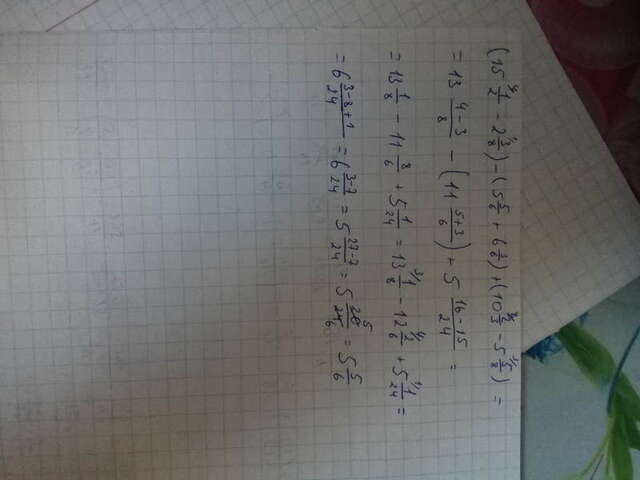 (15 ⁴⁄ 1/2 - 2 ¹⁄ 3/8) - (5 5/6 + 6 3/6) + (10 ⁸⁄ 2/3 - 5 ³⁄ 5/8) =
= 13 (4-3)/8 - (11 (5+3)/6) + 5 (16-15)/24 =
= 13 1/8 - 11 8/6 + 5 1/24 = 13 ³⁄ 1/8 - 12 ⁴⁄ 2/6 + 5 ¹⁄ 1/24 =
= 6 (3-8+1)/24 = 6 (3-7)/24 = 5 (27-7)/24 = 5 20/24 5/6 = 5 5/6